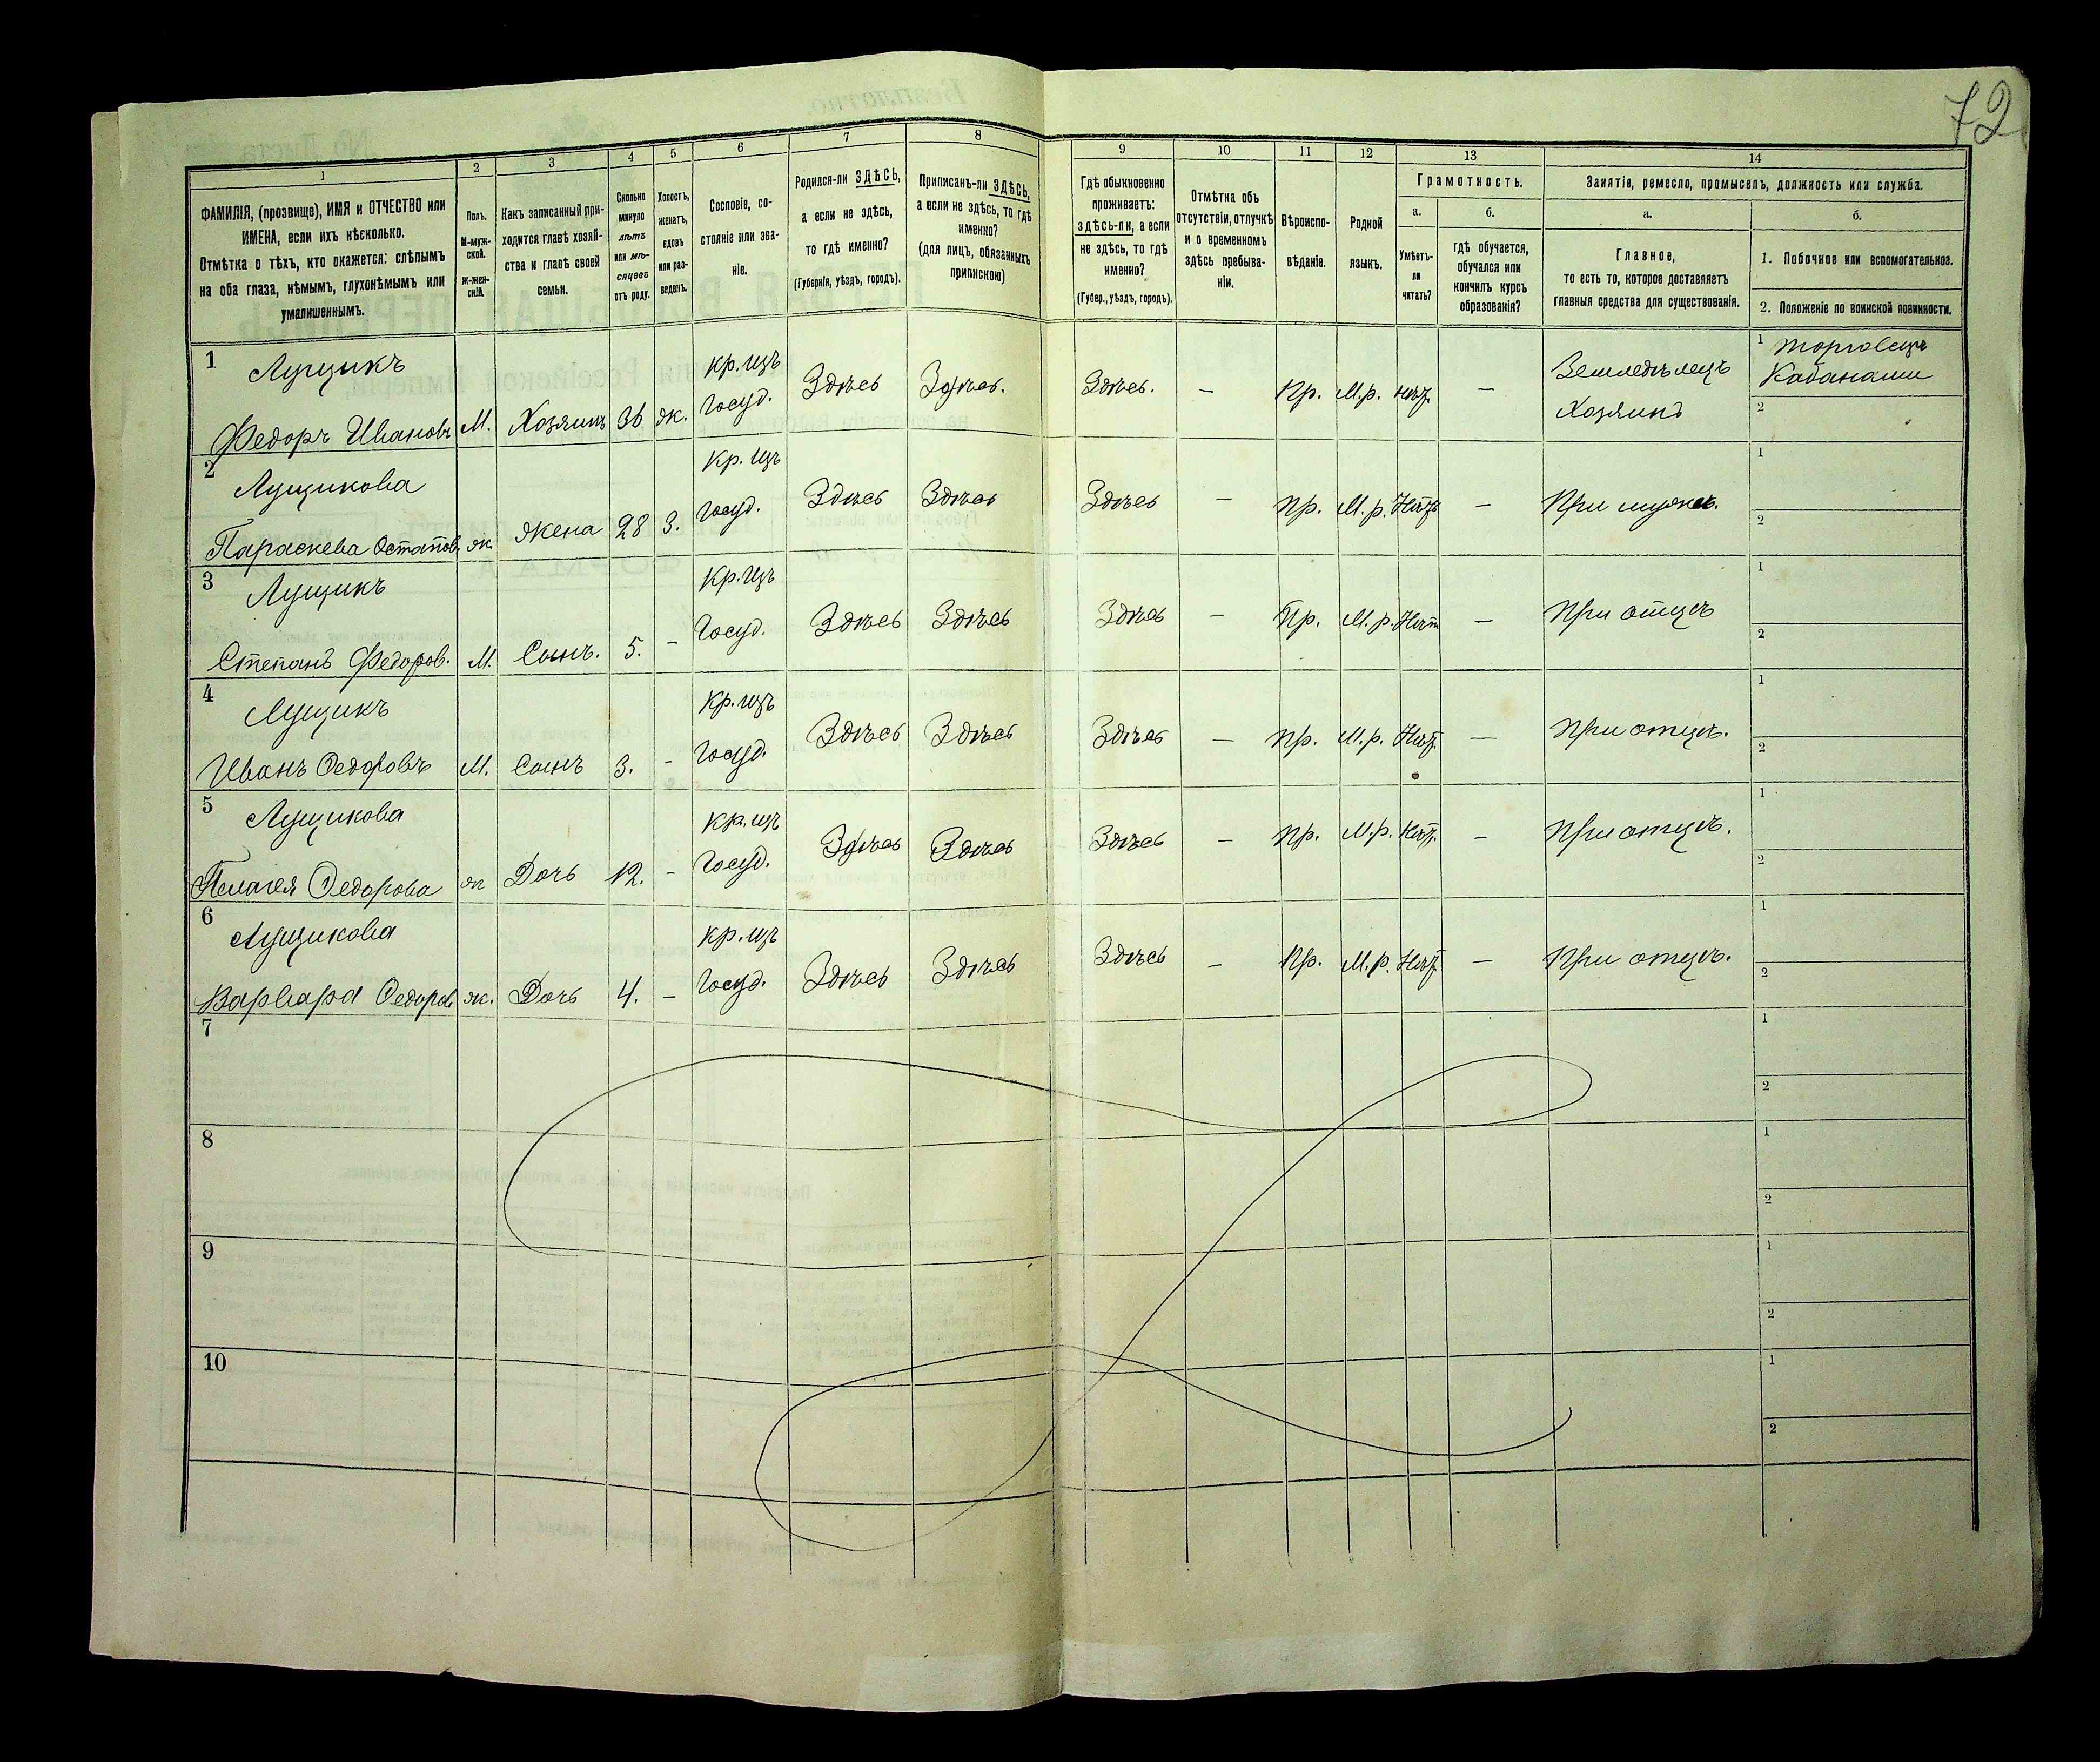 72
1
2
3
4
5
6
7
8
9
10
11
12
13
14
ФАМИЛІЯ, (прозвище), ИМЯ и ОТЧЕСТВО или
ИМЕНА, если ихъ нѣсколько.
Отмѣтка о тѣхъ, кто окажется: слѣпымъ
на оба глаза, нѣмымъ, глухонѣмымъ или
умалишеннымъ.
Полъ.
М-муж-
ской.
Ж-жен-
скій.
Какъ записанный при-
ходится главѣ хозяй-
ства и главѣ своей
семьи.
Сколько
минуло
лѣтъ
или мѣ-
сяцевъ
отъ роду.
Холостъ,
женатъ,
вдовъ
или раз-
веденъ.
Сословіе, со-
стояніе или зва-
ніе.
Родился-ли ЗДѢСЬ,
а если не здѣсь,
то гдѣ именно?
(Губернія, уѣздъ, городъ).
Приписанъ-ли ЗДѢСЬ,
а если не здѣсь, то гдѣ
именно?
(для лицъ, обязанныхъ
припискою)
Гдѣ обыкновенно
проживаетъ:
здѣсь-ли, а если
не здѣсь, то гдѣ
именно?
(Губер., уѣздъ, городъ).
Отмѣтка объ
отсутствіи, отлучкѣ
и о временномъ
здѣсь пребыва-
ніи.
Вѣроиспо-
вѣданіе.
Родной
языкъ.
Грамотность.
а.
Умѣетъ-
ли
читать?
б.
гдѣ обучается,
обучался или
кончилъ курсъ
образованія?
Занятіе, ремесло, промыселъ, должность или служба.
а.
Главное,
то есть то, которое доставляетъ
главныя средства для существованія.
б.
1. Побочное или вспомогательное.
2. Положеніе по воинской повинности.
1 Лущикъ
Федоръ Ивановъ М. Хозяинъ 36 ж. кр. изъ
Госуд. Здѣсь Здѣсь. Здѣсь. — Пр. М.р. нѣт. — Земледѣлецъ
Хозяинъ
1 Торговецъ
Кабанами
2
2 Лущикова
Параскева Остапов. ж. Жена 28 З. Кр. изъ
Госуд. Здѣсь Здѣсь Здѣсь — Пр. М.р. Нѣтъ — При мужѣ.
1
2
3 Лущикъ
Степанъ Федоров. М. Сынъ. 5. – Кр. изъ
Госуд. Здѣсь Здѣсь Здѣсь — Пр. М.р. Нѣт. — При отцѣ
1
2
4 Лущикъ
Иванъ Ѳедоровъ М. Сынъ 3. - Кр. изъ
Госуд. Здѣсь Здѣсь Здѣсь — Пр. М.р. Нѣт. — При отцѣ.
1
2
5 Лущикова
Пелагея Ѳедорова ж Дочь 12. - Кр. изъ
Госуд. Здѣсь Здѣсь Здѣсь – Пр. М.р. Нѣт. – При отцѣ.
1
2
6 Лущикова
Варвара Ѳедоров. ж. Дочь 4. – Кр. изъ
Госуд. Здѣсь Здѣсь Здѣсь – Пр. М.р. Нѣт. — При отцѣ.
1
2
7
1
2
8
1
2
9
1
2
10
1
2